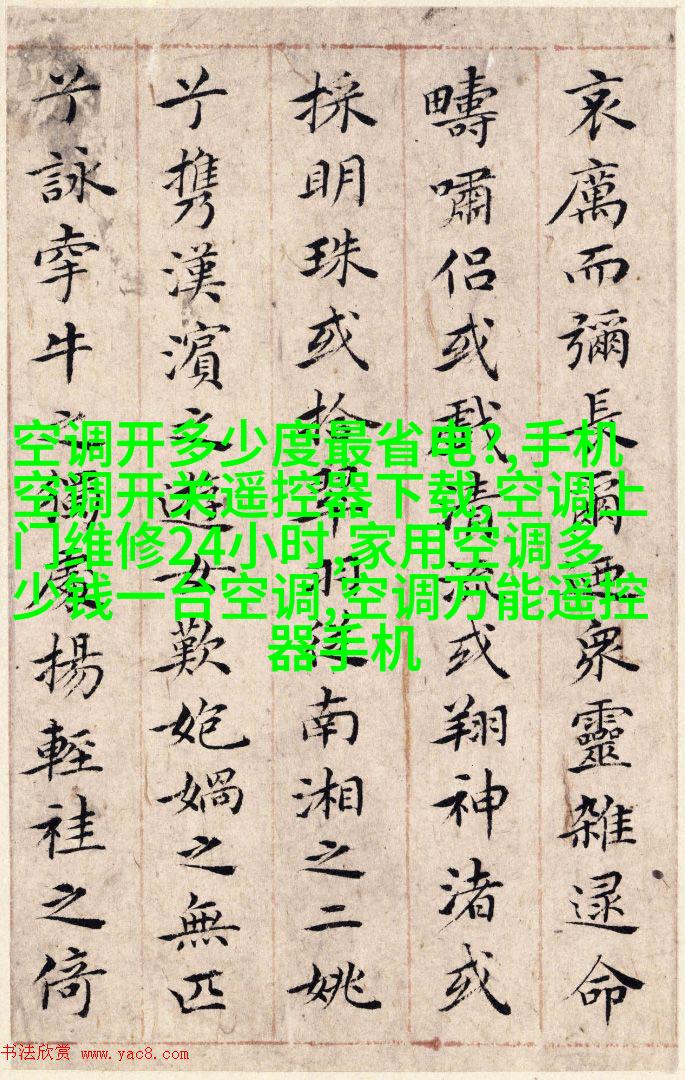 哀厲而彌長爾迺衆靈雜遝命
疇嘯侶或戲清流或翔神渚或
採明珠或拾翠羽從南湘之二姚
兮攜漢濱之遊女歎媧之無匹
兮詠牽牛之獨處揚輕袿之倚
空调开多少度最省电?,手机
空调开关遥控器下载,空调上
门维修24小时,家用空调多
少钱一台空调,空调万能遥控
器手机
书法欣赏 www.yac8.com